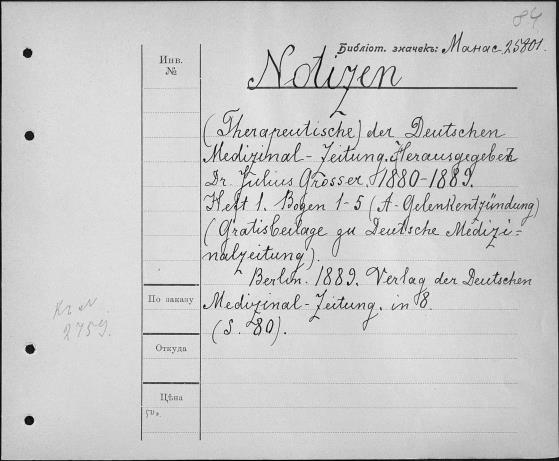 84
Библіот. значекъ: Манас. 25801.
Инв.
№
Notizen
(Therapeutische) der Deutschen
Medizinal-Zeitung. Herausgegeben
Dr. Julius Grosser. 1880-1889.
Heft 1. Bogen 1-5 (A-Gelenkentzündung)
(Gratisbeilage zu Deutsche Medizi-
nalzeitung).
Berlin. 1889. Verlag der Deutschen
По заказу
Medizinal-Zeitung. in 8.
(S. 80).
Kr N
2759.
Откуда
Цѣна